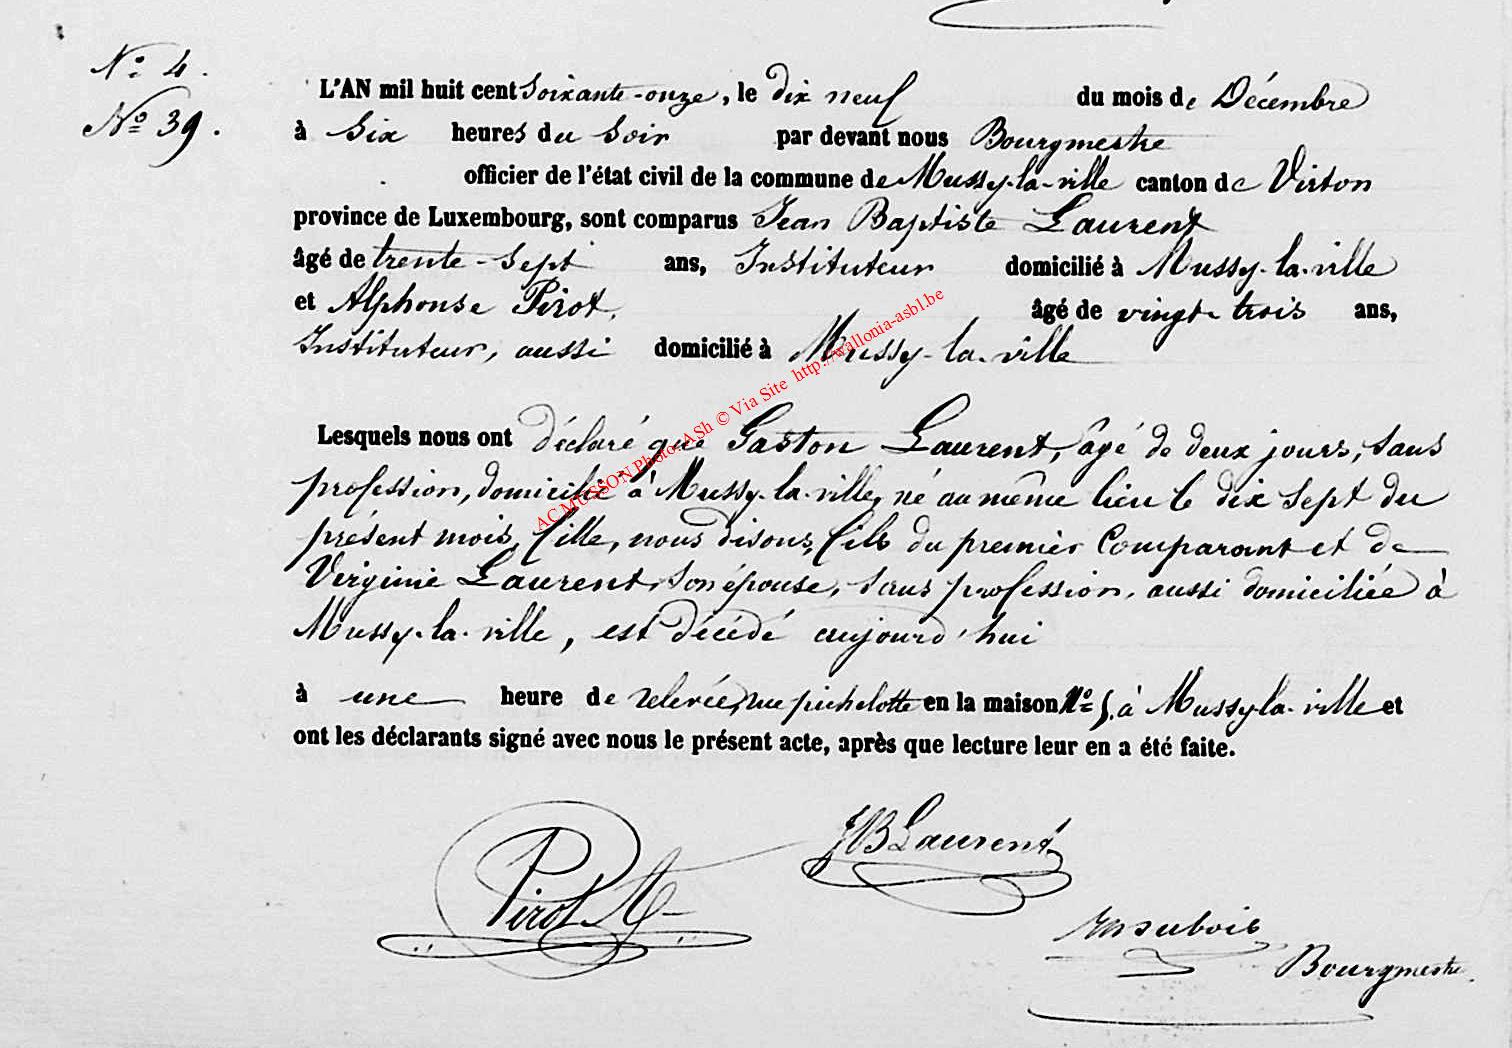 N° 4.
N° 39.
L'AN mil huit cent soixante-onze, le dix neuf du mois de Décembre
à six heures du soir par devant nous Bourgmestre
officier de l'état civil de la commune de Mussy-la-ville canton de Virton
province de Luxembourg, sont comparus Jean Baptiste Laurent
âgé de trente-sept ans, Instituteur domicilié à Mussy-la-ville
et Alphonse Pirot, âgé de vingt trois ans,
Instituteur, aussi domicilié à Mussy-la-ville
Lesquels nous ont déclaré que Gaston Laurent, âgé de deux jours, sans
profession, domicilié à Mussy-la-ville, né au même lieu le dix sept du
présent mois, fille, nous disons, fils du premier Comparant et de
Virginie Laurent, son épouse, sans profession, aussi domiciliée à
Mussy-la-ville, est décédé aujourd'hui
à une heure de relevée, rue pichelotte en la maison N° 5, à Mussy-la-ville et
ont les déclarants signé avec nous le présent acte, après que lecture leur en a été faite.
JB Laurent
Pirot A
Bourgmestre
ACMUSSON Photo: ASh © Via Site http://wallonia-asbl.be